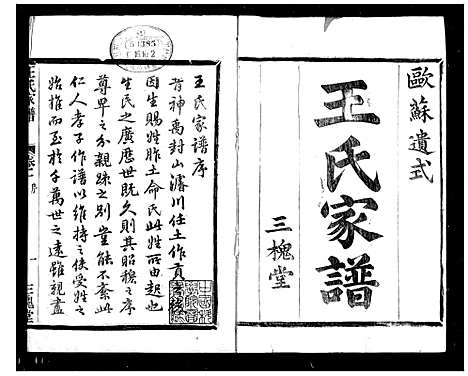 歐蘇遺式
王氏家譜
三槐堂
王氏家譜序
昔神禹封山濬川任土作貢
因生賜姓胙土命氏此姓所由起也
生民之廣歷世既久則其昭穆之序
尊卑之分親疎之別豈能不紊此
仁人孝子作譜以維持之使受姓之
始推而至於千萬世之遠雖親盡
王氏家譜
序
一
三槐堂